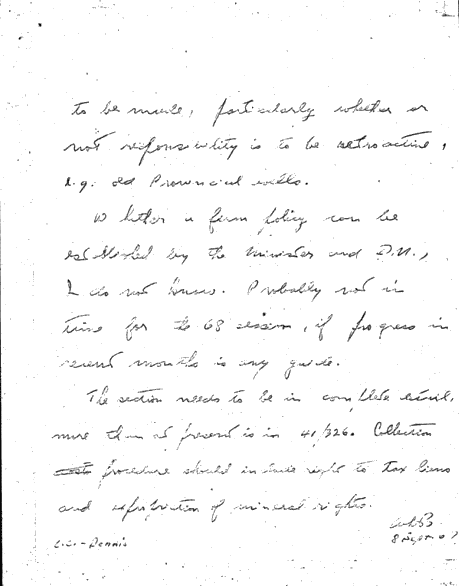 to be made, particularly whether or
not responsibility is to be retroactive,
e.g. old Provincial wells.
Whether a firm policy can be
established by the Minister and D.M.,
I do not know. Probably not in
time for the 68 session, if progress in
recent months is any guide.
The section needs to be in complete detail,
more than at present is in 41/326. Collection
procedure should include right to tax liens
and expropriation of mineral rights.
c.c. - Dennis